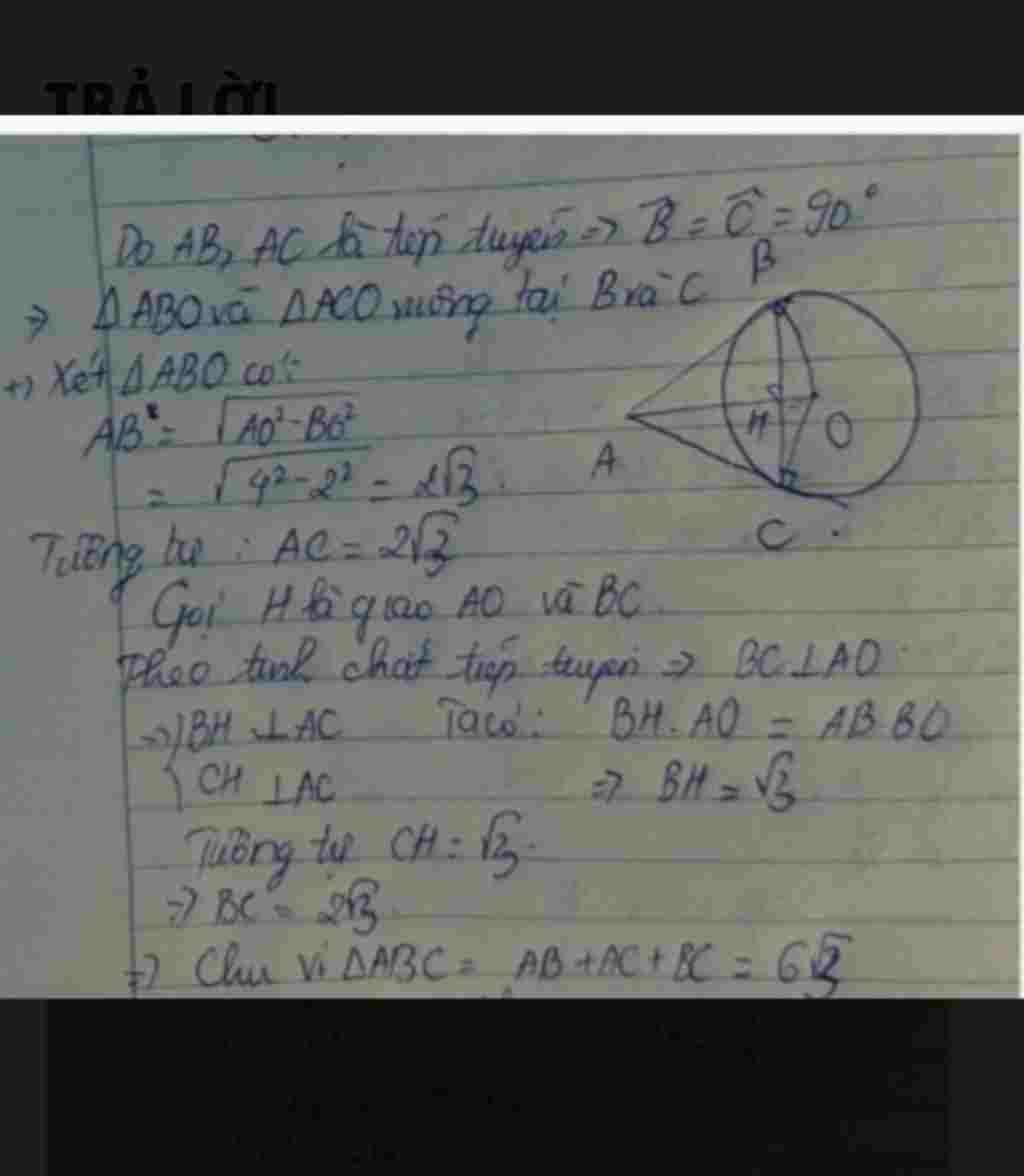 TRẢ LỜI
Do AB, AC là tiếp tuyến => B̂ = Ĉ = 90°
=> ΔABO và ΔACO vuông tại B và C
+) Xét ΔABO có:
AB = √AO² - BO²
= √4² - 2² = 2√3.
Tương tự : AC = 2√3
Gọi H là giao AO và BC.
Theo tính chất tiếp tuyến => BC ⊥ AO
=> { BH ⊥ AC Ta có: BH. AO = AB. BO
CH ⊥ AC => BH = √3
Tương tự CH = √3.
=> BC = 2√3.
=> Chu vi ΔABC = AB + AC + BC = 6√3
B
A
H
O
C